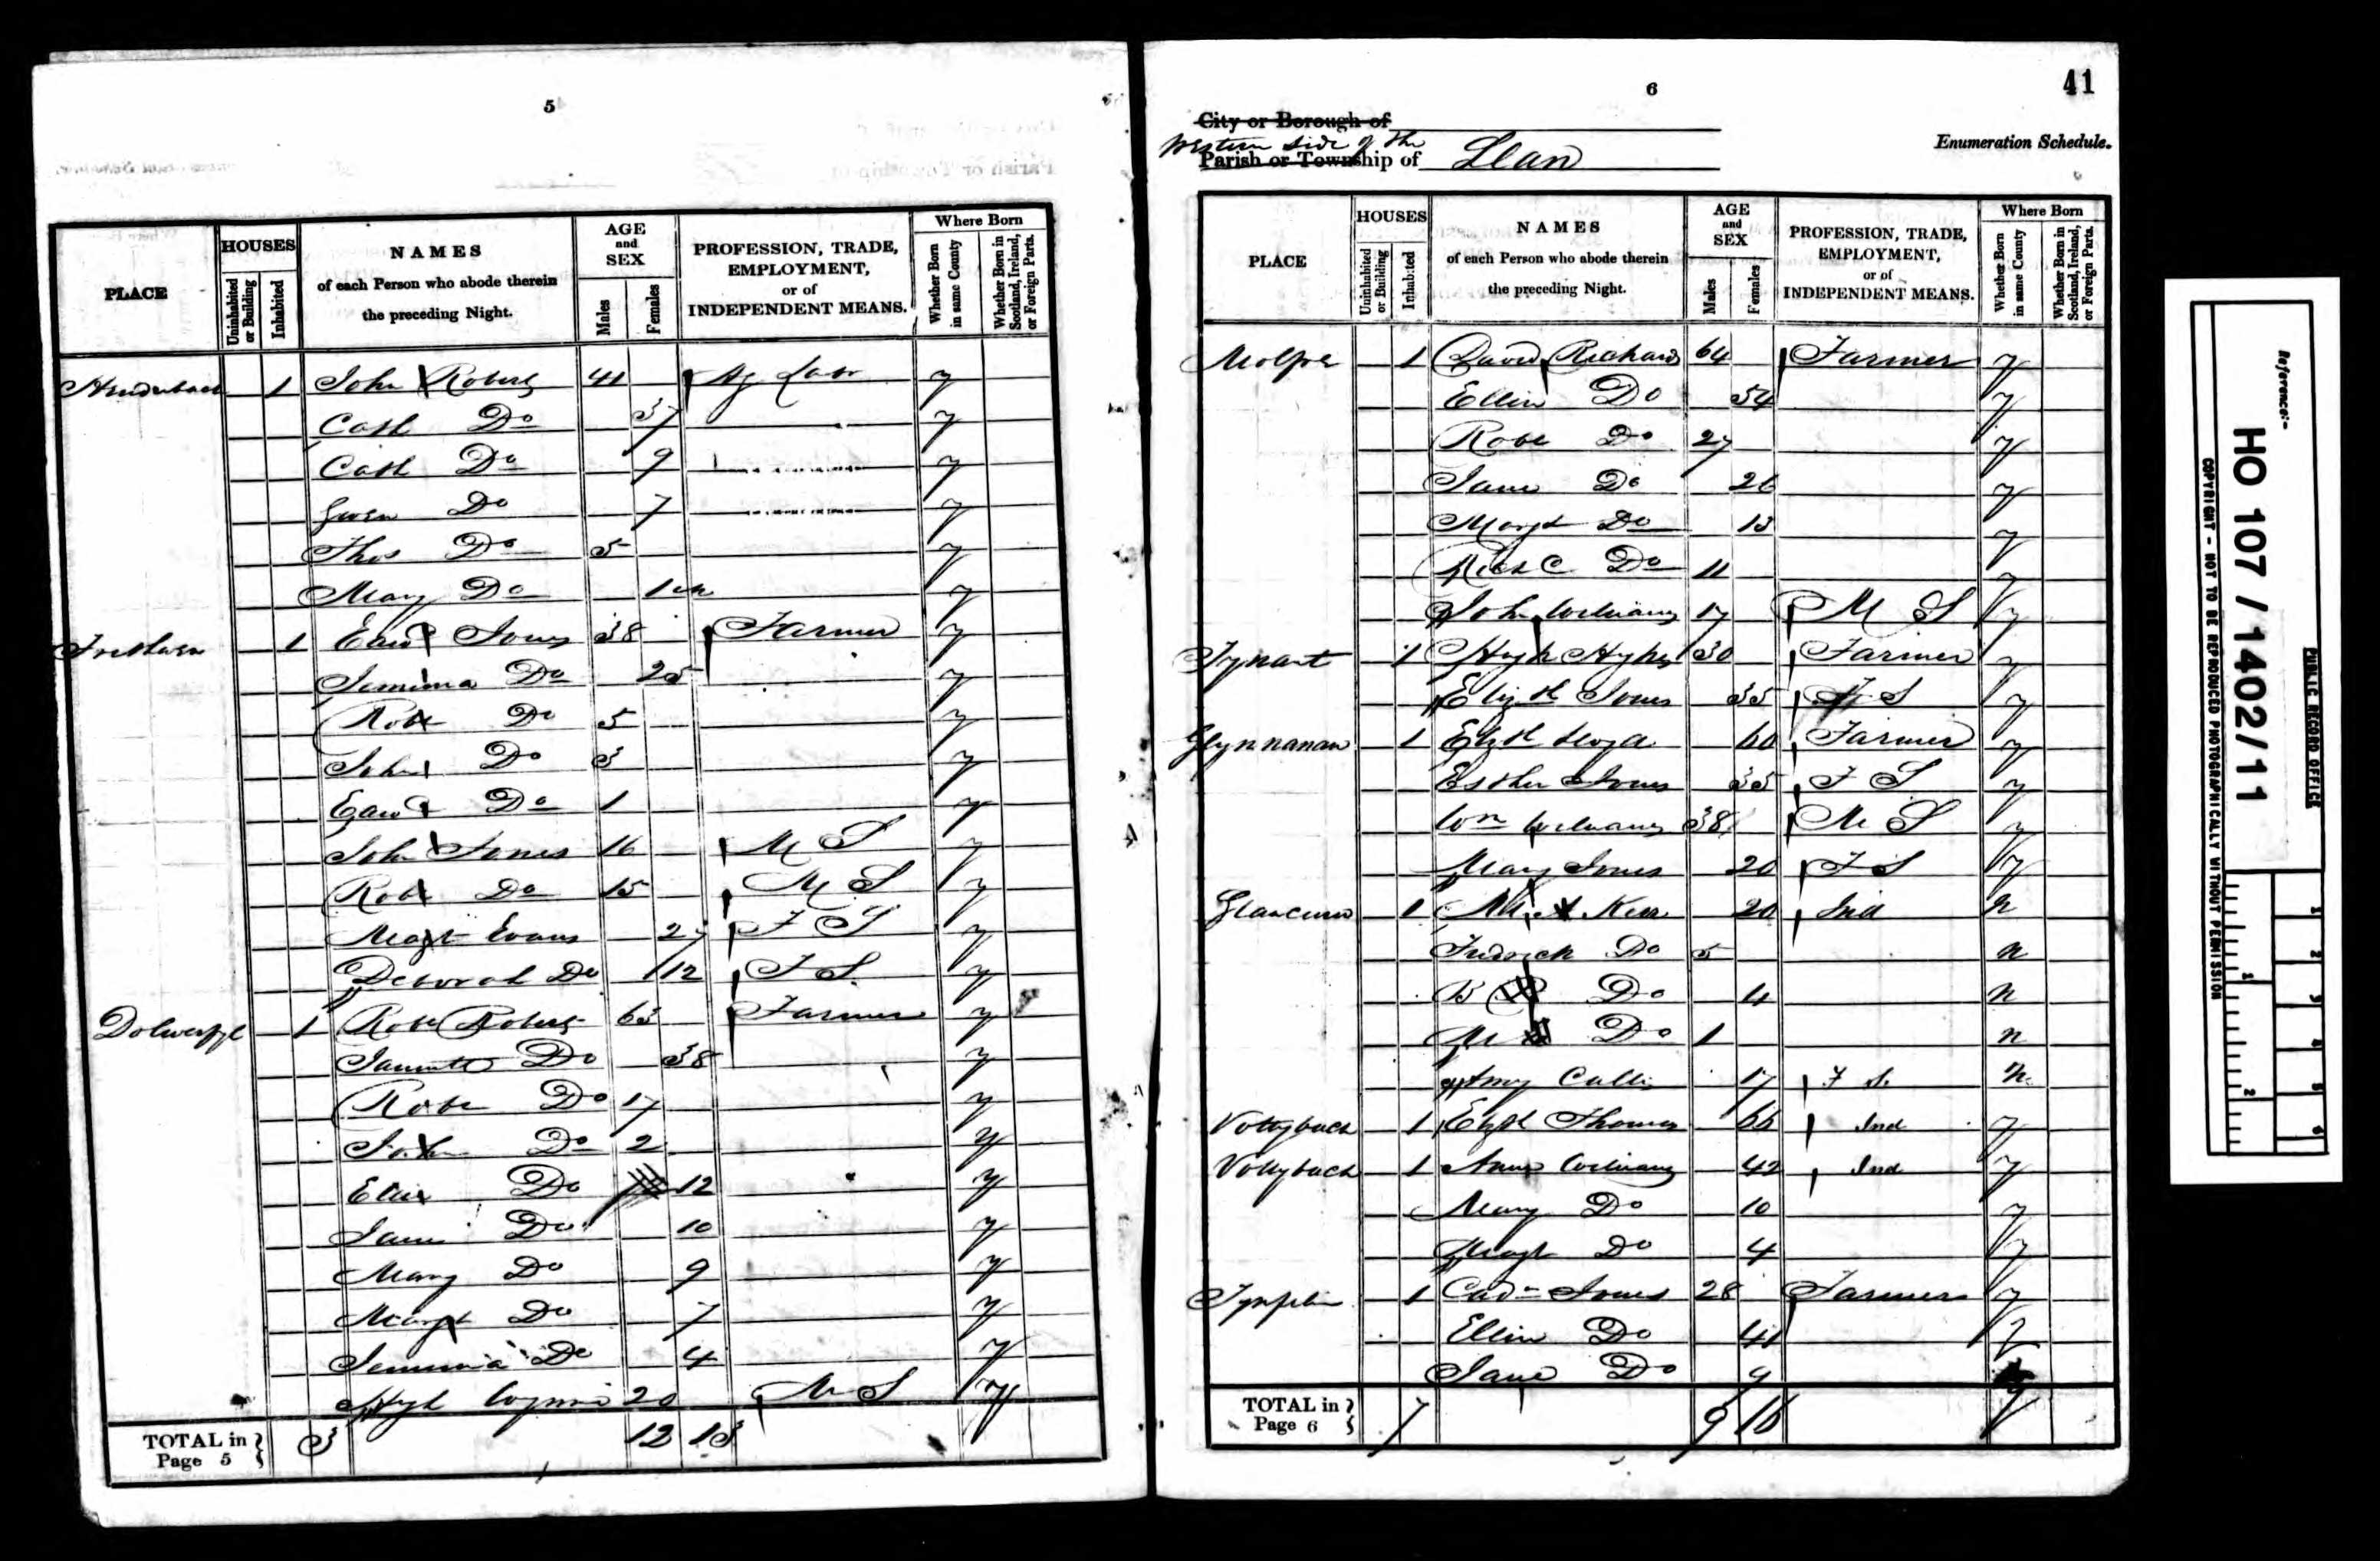 5
PLACE
HOUSES
Uninhabited or Building
Inhabited
NAMES
of each Person who abode therein
the preceding Night.
AGE
and
SEX
Males
Females
PROFESSION, TRADE,
EMPLOYMENT,
or of
INDEPENDENT MEANS.
Where Born
Whether Born in same County
Whether Born in Scotland, Ireland, or Foreign Parts.
1 John Roberts 41 Ag Labr y
Cath Do 37 y
Cath Do 9 y
Gwen Do 7 y
Thos Do 5 y
Mary Do 1 m y
1 Edwd Jones 38 Farmer y
Jemima Do 25 y
Robt Do 5 y
John Do 3 y
Edwd Do 1 y
John Jones 16 M S y
Robt Do 15 M S y
Margt Evans 27 F S y
Deborah Do 12 F S y
1 Robt Roberts 63 Farmer y
Do 38 y
Robt Do 17 y
John Do 2 y
Do 12 y
Jane Do 10 y
Mary Do 9 y
Margt Do 7 y
Jemima Do 4 y
Hugh 20 M S y
TOTAL in Page 5 3 12 13
6
41
City or Borough of
Western side of the
Parish or Township of Llan
Enumeration Schedule.
PLACE
HOUSES
Uninhabited or Building
Inhabited
NAMES
of each Person who abode therein
the preceding Night.
AGE
and
SEX
Males
Females
PROFESSION, TRADE,
EMPLOYMENT,
or of
INDEPENDENT MEANS.
Where Born
Whether Born in same County
Whether Born in Scotland, Ireland, or Foreign Parts.
Moelfre 1 David Richard 64 Farmer y
Ellin Do 54 y
Robt Do 27 y
Jane Do 26 y
Margt Do 13 y
Richd Do 11 y
John Williams 17 M S y
Tynant 1 Hugh Hughes 30 Farmer y
Elizth Jones 35 F S y
Glynnanan 1 Elizth Lloyd 60 Farmer y
Esther Jones 35 F S y
Wm Williams 38 M S y
Mary Jones 20 F S y
1 Kerr 20 Ind n
Fredrick Do 5 n
B Do 4 n
M Do 1 n
Amy 17 F S n
Vottybach 1 Elizth Thomas 66 Ind y
Vottybach 1 Anne Williams 42 Ind y
Mary Do 10 y
Margt Do 4 y
1 Cadr Jones 28 Farmer y
Ellin Do 41 y
Jane Do 9 y
TOTAL in Page 6 7 9 16
Reference:-
HO 107/1402/11
PUBLIC RECORD OFFICE
COPYRIGHT - NOT TO BE REPRODUCED PHOTOGRAPHICALLY WITHOUT PERMISSION
1 2 3 4 5 6
1 2